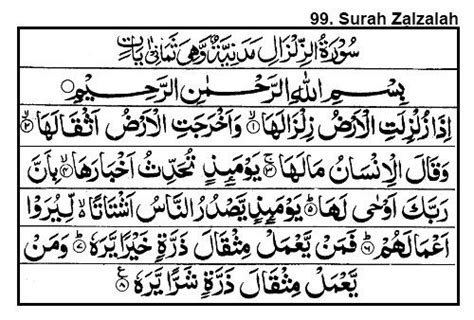 99. Surah Zalzalah
سُوْرَةُ الزِّلْزَالِ مَدَنِيَّةٌ وَّهِيَ ثَمَانِيْ اٰيَاتٍ
بِسْمِ اللهِ الرَّحْمٰنِ الرَّحِيْمِ
اِذَا زُلْزِلَتِ الْاَرْضُ زِلْزَالَهَا ۙ﴿۱﴾ وَاَخْرَجَتِ الْاَرْضُ اَثْقَالَهَا ۙ﴿۲﴾
وَقَالَ الْاِنْسَانُ مَا لَهَا ۚ﴿۳﴾ يَوْمَئِذٍ تُحَدِّثُ اَخْبَارَهَا ۙ﴿۴﴾ بِاَنَّ
رَبَّكَ اَوْحٰى لَهَا ؕ﴿۵﴾ يَوْمَئِذٍ يَّصْدُرُ النَّاسُ اَشْتَاتًا ۙ لِّيُرَوْا
اَعْمَالَهُمْ ؕ﴿۶﴾ فَمَنْ يَّعْمَلْ مِثْقَالَ ذَرَّةٍ خَيْرًا يَّرَهٗ ؕ﴿۷﴾ وَمَنْ
يَّعْمَلْ مِثْقَالَ ذَرَّةٍ شَرًّا يَّرَهٗ ﴿۸﴾ ع